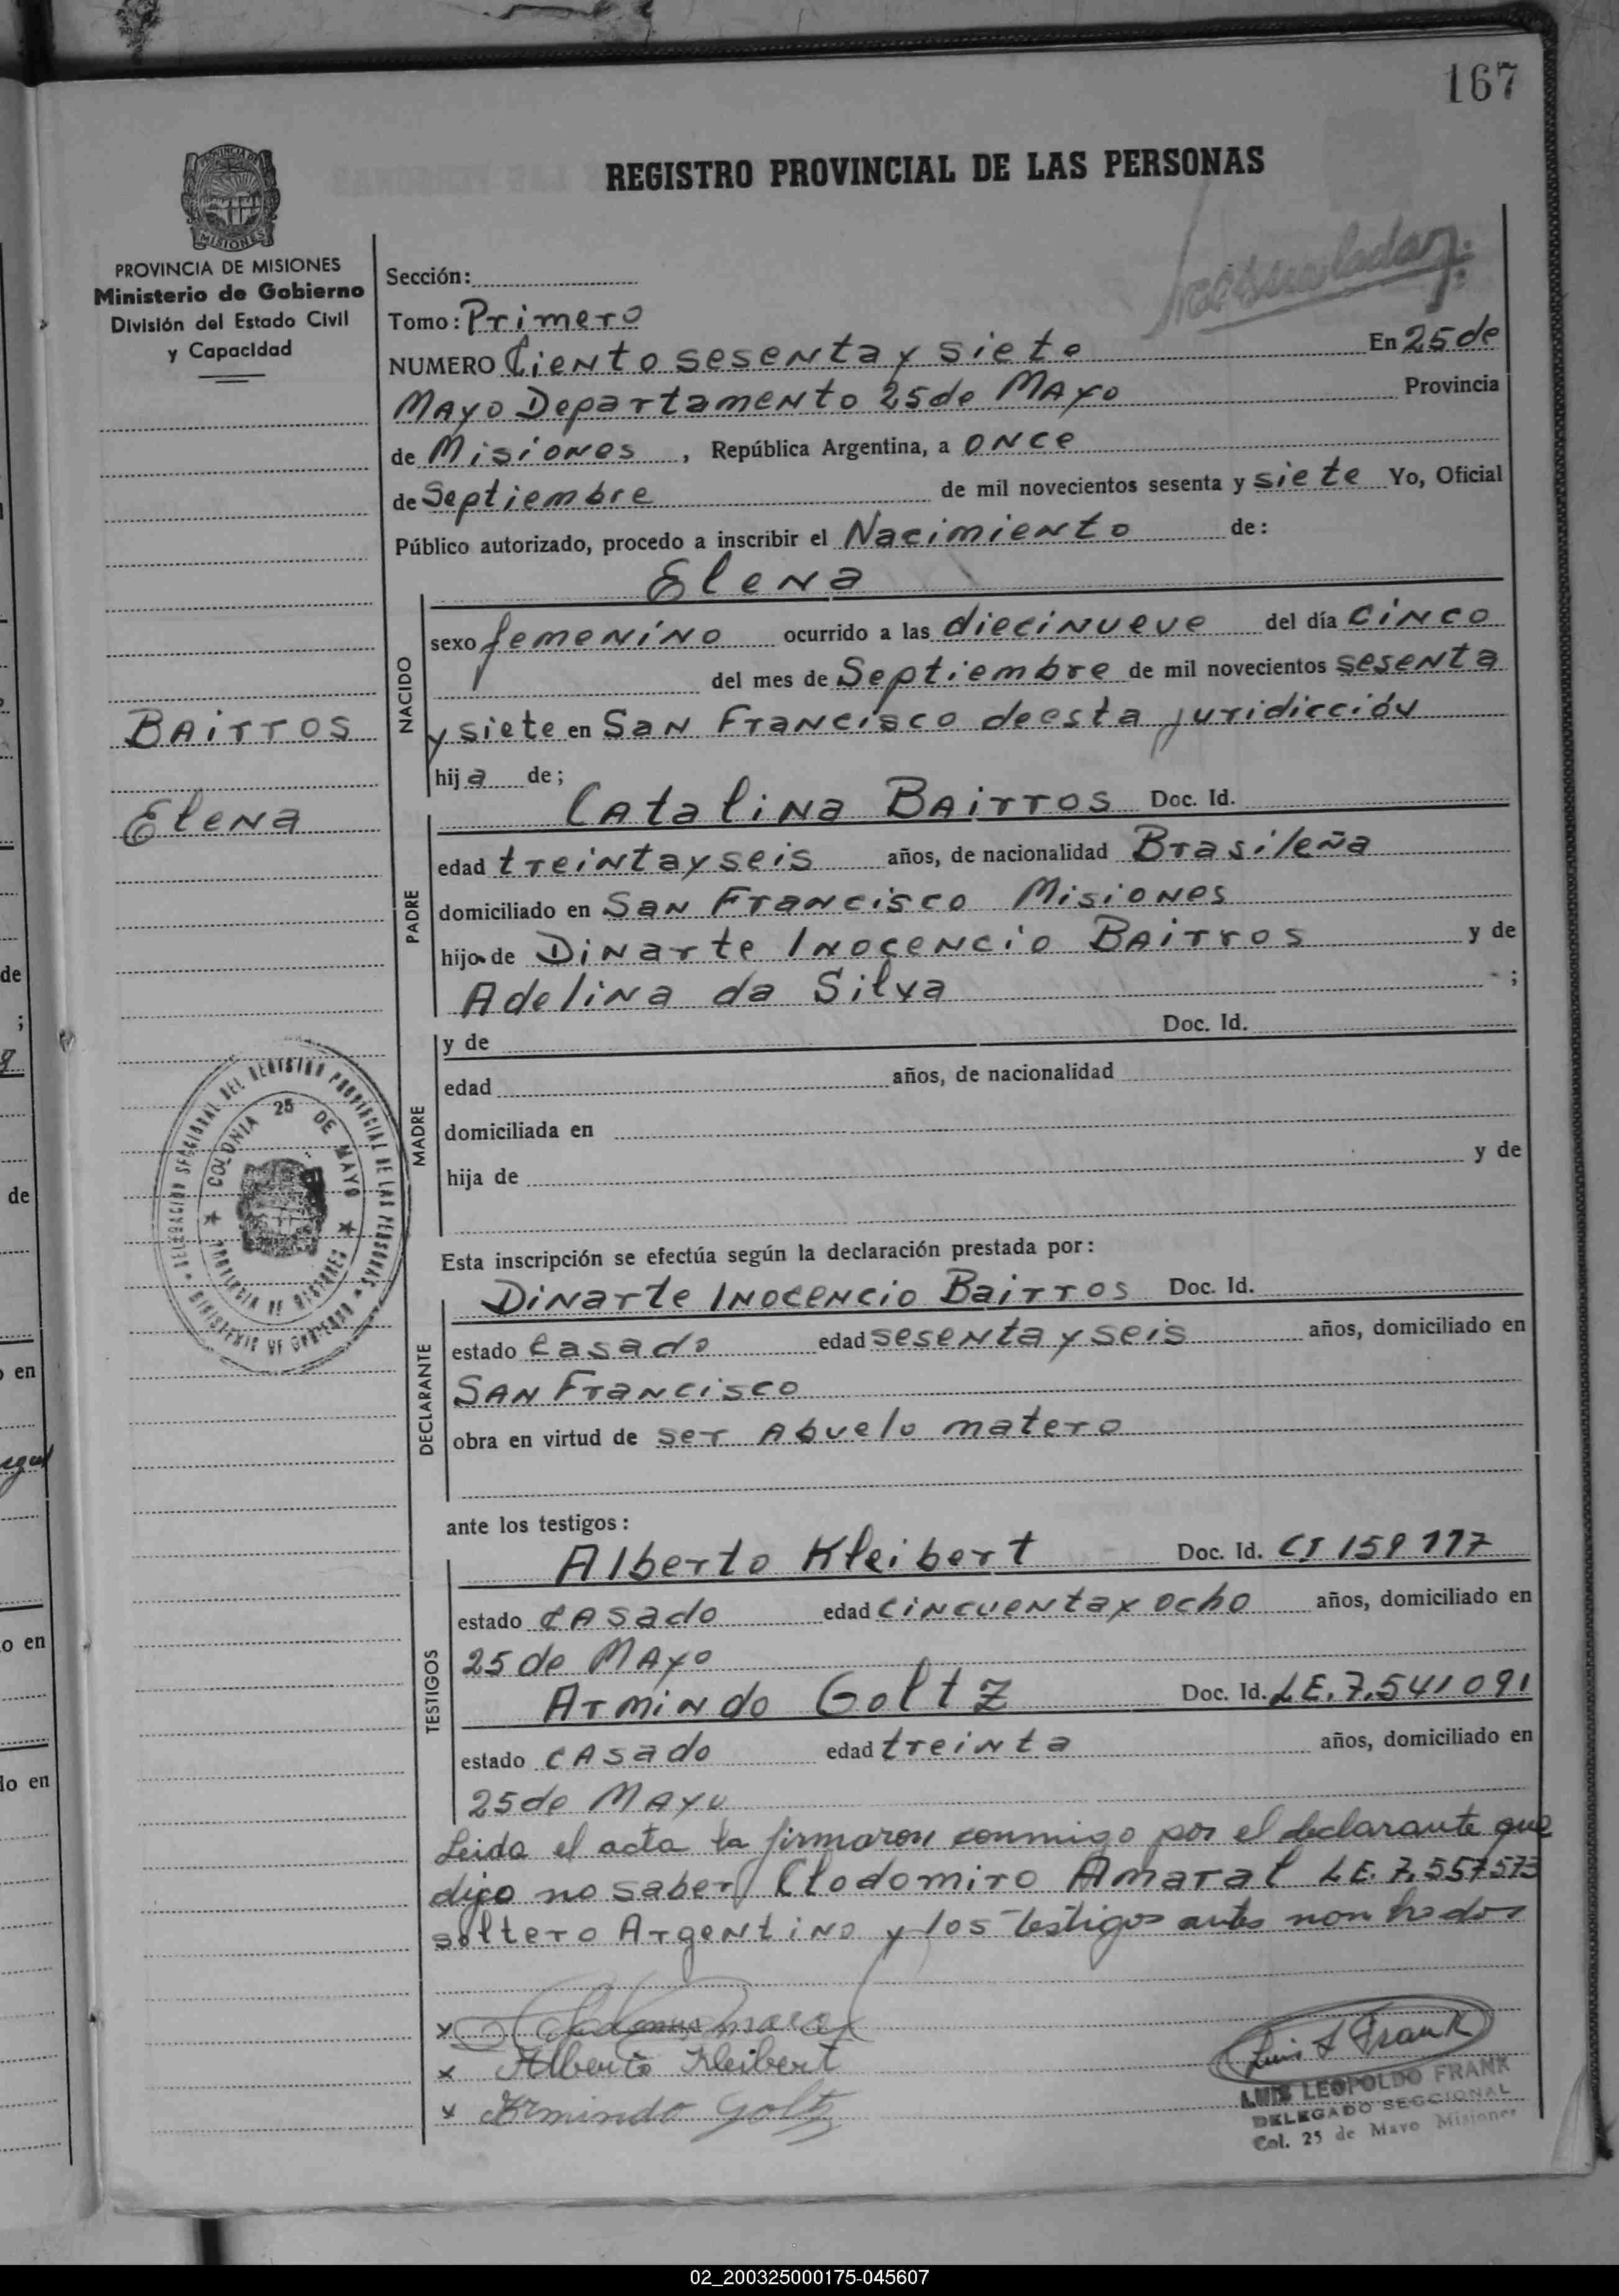 167
REGISTRO PROVINCIAL DE LAS PERSONAS
PROVINCIA DE MISIONES
Ministerio de Gobierno
División del Estado Civil
y Capacidad
Sección:
Tomo: Primero
NUMERO Ciento sesenta y siete En 25 de
Mayo Departamento 25 de Mayo Provincia
de Misiones, República Argentina, a once
de Septiembre de mil novecientos sesenta y siete Yo, Oficial
Público autorizado, procedo a inscribir el Nacimiento de:
Elena
NACIDO
sexo femenino ocurrido a las diecinueve del día cinco
del mes de Septiembre de mil novecientos sesenta
y siete en San Francisco de esta juridicción
hija de;
BAirros
Elena
PADRE
Catalina Bairros Doc. Id.
edad treinta y seis años, de nacionalidad Brasileña
domiciliado en San Francisco Misiones
hijo de Dinarte Inocencio Bairros y de
Adelina da Silva ;
MADRE
y de Doc. Id.
edad años, de nacionalidad
domiciliada en
hija de y de
DELEGACION SECCIONAL DEL REGISTRO PROVINCIAL DE LAS PERSONAS
COLONIA 25 DE MAYO
PROVINCIA DE MISIONES
MINISTERIO DE GOBIERNO
Esta inscripción se efectúa según la declaración prestada por:
DECLARANTE
Dinarte Inocencio Bairros Doc. Id.
estado casado edad sesenta y seis años, domiciliado en
San Francisco
obra en virtud de ser Abuelo matero
ante los testigos:
TESTIGOS
Alberto Kleibert Doc. Id. CI 159117
estado casado edad cincuenta y ocho años, domiciliado en
25 de Mayo
Armindo Goltz Doc. Id. LE. 7.541091
estado casado edad treinta años, domiciliado en
25 de Mayo
Leida el acta la firmaron conmigo por el declarante que
dijo no saber Clodomiro Amaral LE. 7.557573
soltero Argentino y los testigos antes nombrados
x
x Alberto Kleibert
x Armindo Goltz
Luis L Frank
LUIS LEOPOLDO FRANK
DELEGADO SECCIONAL
Col. 25 de Mayo Misiones
02_200325000175-045607